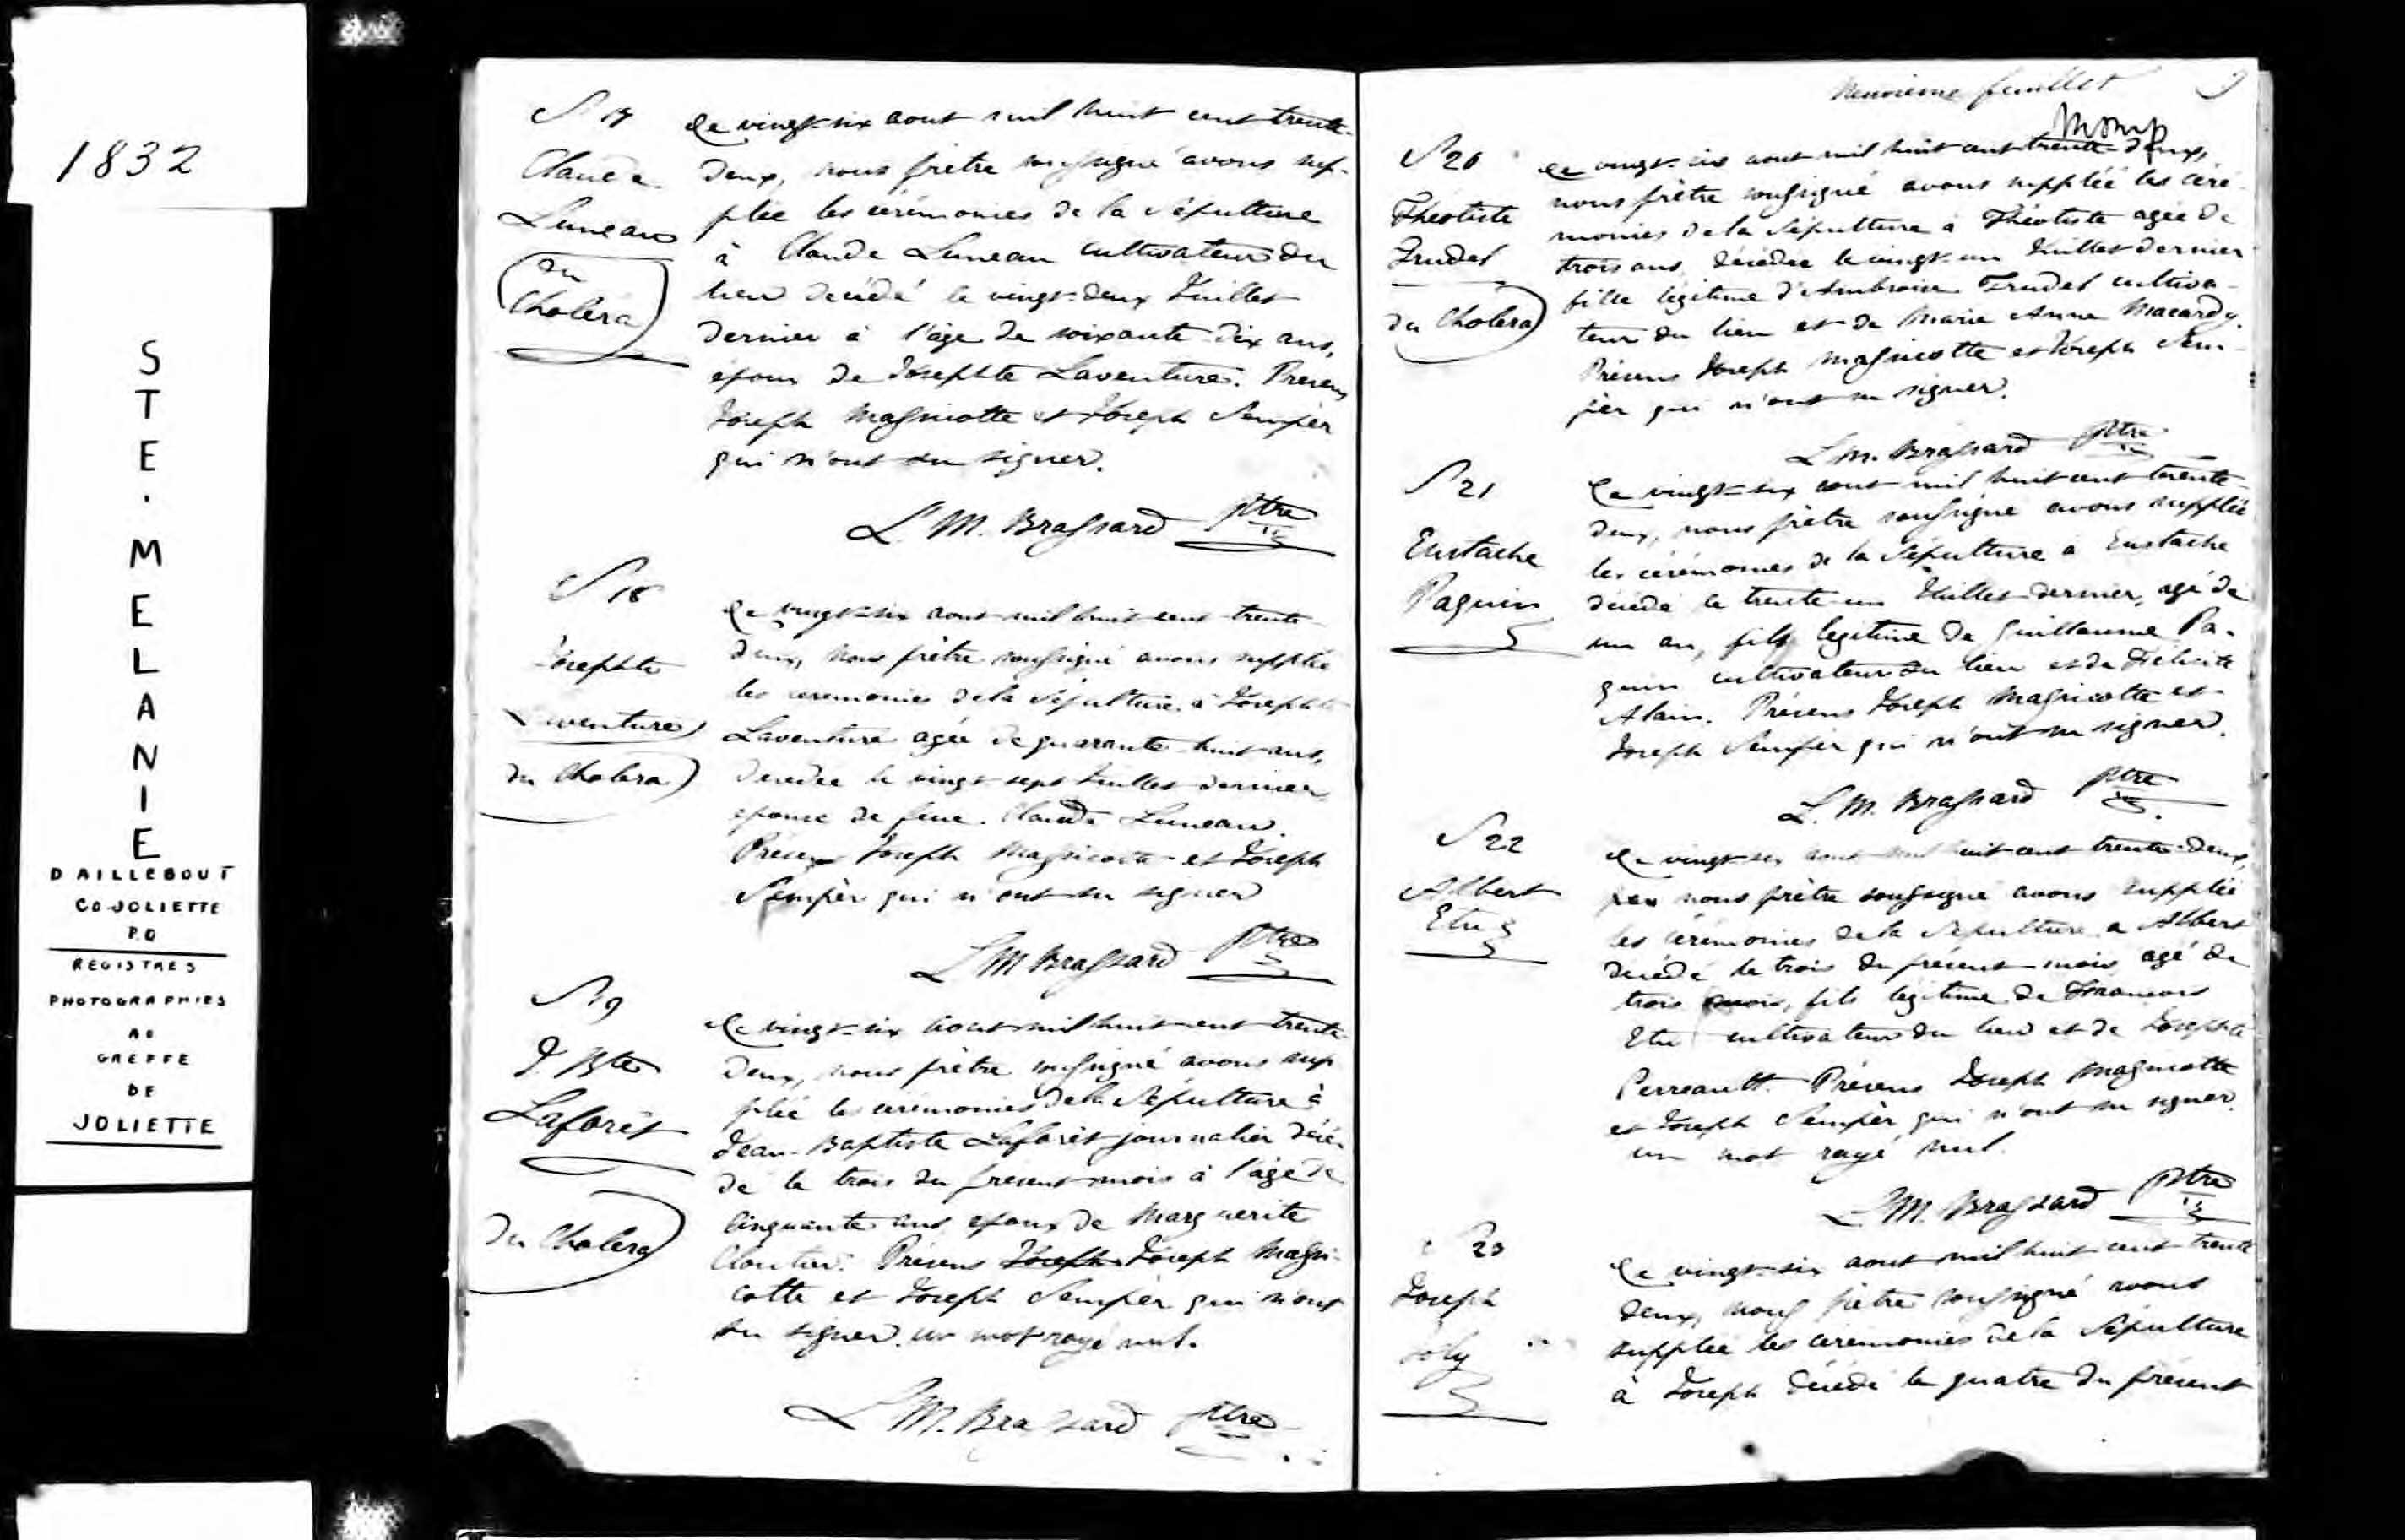 1832
STE. MELANIE
DAILLEBOUT
CO JOLIETTE
P.Q
REGISTRES
PHOTOGRAPHIES
AU
GREFFE
DE
JOLIETTE
S 17
Claude
Luneau
du
Choléra
Le vingt-six aout mil huit cent trente-
deux, nous prêtre soussigné avons sup-
plée les cérémonies de la Sépulture
à Claude Luneau cultivateur du
lieu décédé le vingt-deux Juillet
dernier à l'âge de soixante-dix ans,
époux de Josephte Laventure. Présens
Joseph Magnicotte et Joseph Sempèr
qui n'ont su signer.
L. M. Brassard Ptre
S 18
Josephte
Laventure
du Choléra
Le vingt-six aout mil huit cent trente-
deux, nous prêtre soussigné avons supplée
les ceremonies de la Sépulture à Josephte
Laventure agée de quarante-huit ans,
decedée le vingt-sept Juillet dernier,
epouse de feue Claude Luneau.
Présens Joseph Magnicotte et Joseph
Sempèr qui n'ont su signer
L M Brassard Ptre
S 19
J. Bte
Laforêt
du Cholera
Le vingt-six aout mil huit cent trente-
deux, nous prêtre soussigné avons sup
pléé les cérémonies de la Sépulture à
Jean-Baptiste Laforêt journalier décé-
dé le trois du présent mois à l'age de
cinquante ans, epoux de Marguerite
Cloutier. Présens Joseph Joseph Magni-
cotte et Joseph Sempèr qui n'ont
su signer. un mot rayé nul.
L M. Brassard Ptre
Neuvieme feuillet 9
S 20
Théotiste
Trudel
du Choléra
Le vingt-six aout mil huit cent trente-deux,
nous prêtre soussigné avons suppléé les céré-
monies de la Sépulture à Théotiste agée de
trois ans, décédée le vingt-un Juillet dernier
fille légitime d'Ambroise Trudel cultiva-
teur du lieu et de Marie Anne Macardy.
Présens Joseph Magnicotte et Joseph Sem-
pèr qui n'ont su signer.
L. M. Brassard Ptre
S 21
Eustache
Paquin
Le vingt-six aout mil huit cent trente-
deux, nous prêtre soussigné avons suppléé
les cérémonies de la Sépulture à Eustache
décédé le trente-un Juillet dernier, agé de
un an, fils legitime de Guillaume Pa-
quin cultivateur du lieu et de Félicité
Alain. Présens Joseph Magnicotte et
Joseph Sempèr qui n'ont su signer.
L. M. Brassard Ptre
S 22
Albert
Etu
Le vingt-six aout mil huit cent trente-deux,
nous prêtre soussigné avons suppléé
les cérémonies de la Sépulture a Albert
décédé le trois du présent mois agé de
trois mois, fils légitime de Francois
Etu cultivateur du lieu et de Josephte
Perreault. Présens Joseph Magnicotte
et Joseph Sempèr qui n'ont su signer.
un mot rayé nul.
L M. Brassard Ptre
S 23
Joseph
Joly
Le vingt-six aout mil huit cent trente
deux, nous prêtre soussigné avons
suppléé les cérémonies de la Sépulture
à Joseph décédé le quatre du présent